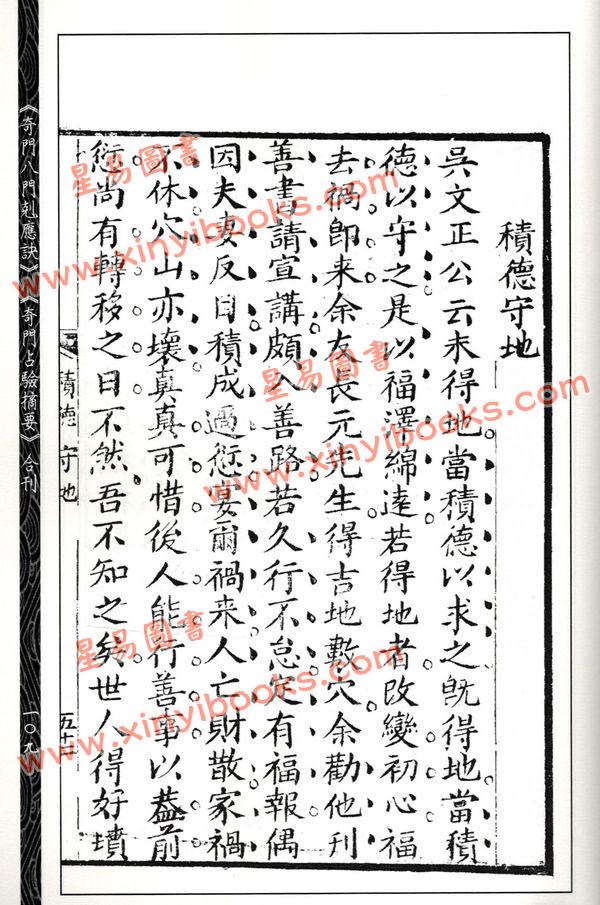 積德守地
吳文正公云未得地當積德以求之既得地當積
德以守之是以福澤綿遠若得地者改變初心福
去禍即来余友長元先生得吉地數穴余勸他刊
善書請宣講頗入善路若久行不怠定有福報偶
因夫妻反目積成過愆蓑爾禍来人亡財散家禍
不休穴山亦壞真真可惜後人能行善事以蓋前
愆尚有轉移之日不然吾不知之矣世人得好墳
積德守地
五十二
《奇門八門剋應訣》《奇門占驗摘要》合刊
一〇九
星易圖書
www.xinyibooks.com
星易圖書
www.xinyibooks.com
星易圖書
www.xinyibooks.com